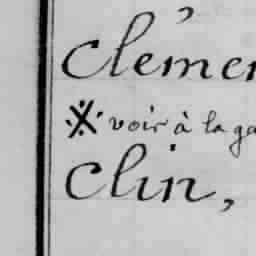 clémen
※ voir à la ga
clin,